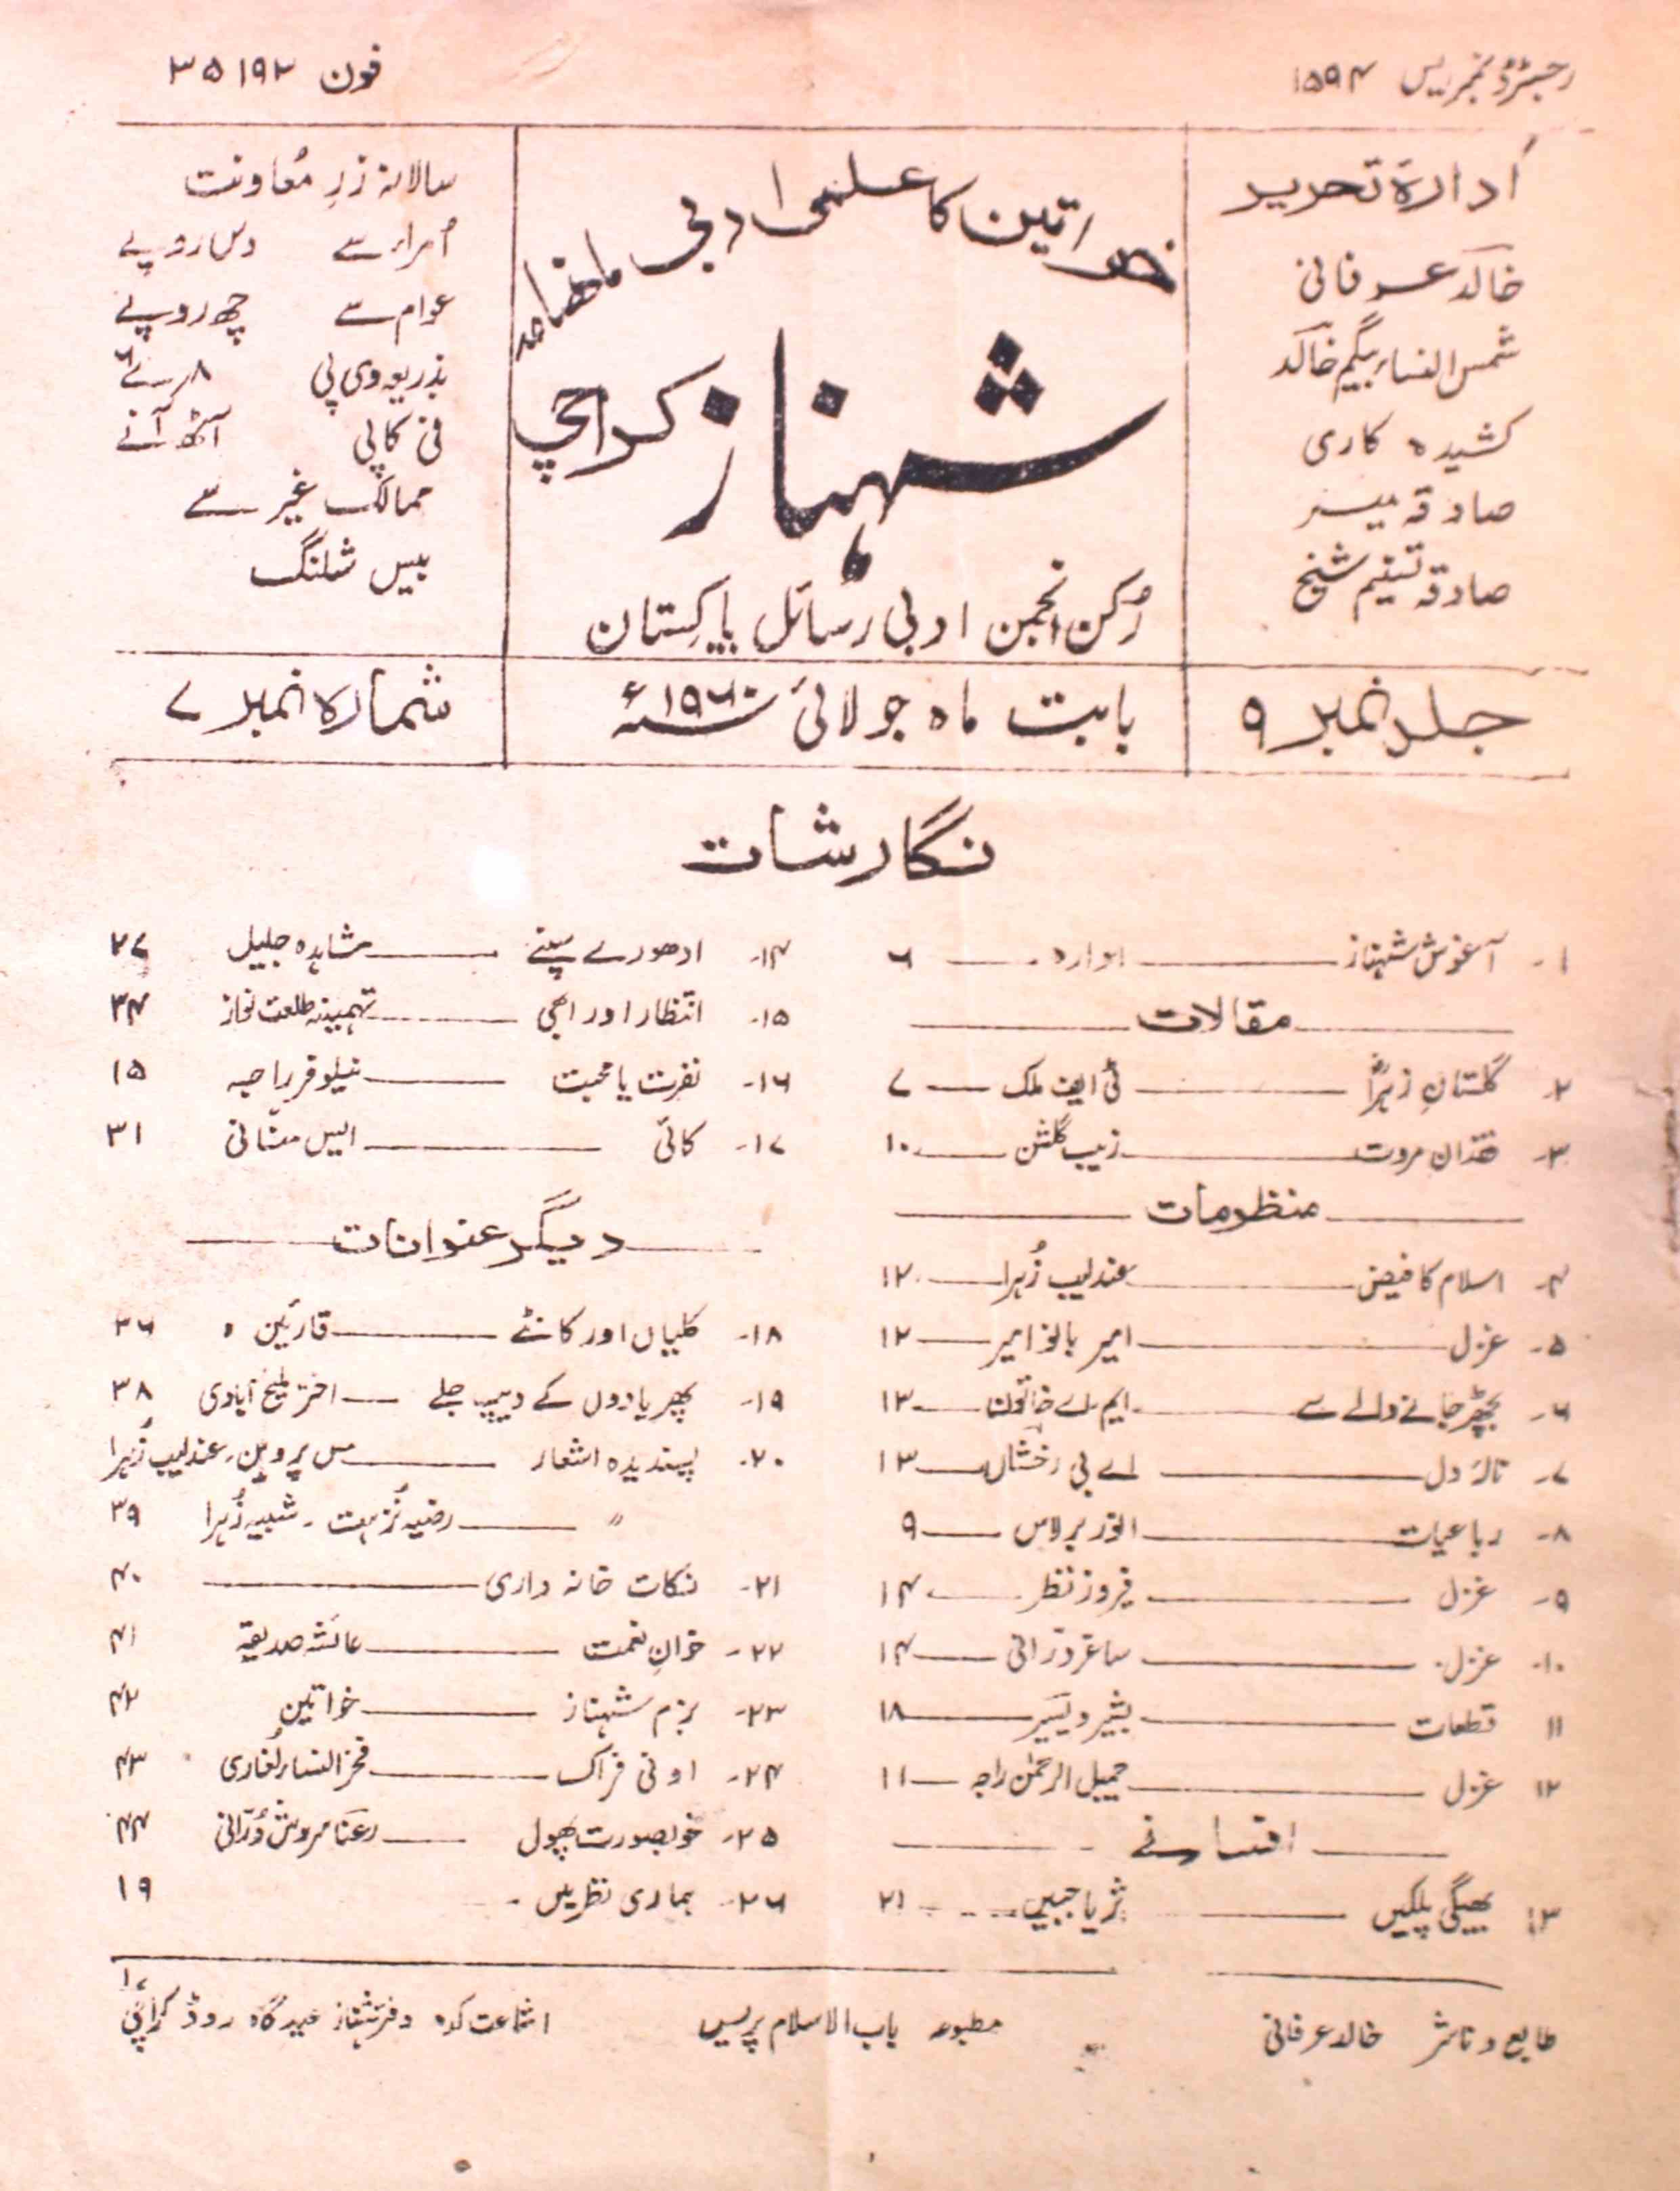 رجسٹرڈ نمبر ایس ۱۵۹۴
فون ۳۵۱۹۲
ادارۂ تحریر
خالد عرفانی
شمس النساء بیگم خالد
کشیدہ کاری
صادقہ میسر
صادقہ تسنیم شیخ
خواتین کا علمی ادبی ماھنامہ
شہناز کراچی
رُکن انجمن ادبی رسائل پاکستان
سالانہ زرِ معُاونت
اُمراء سے دس روپے
عوام سے چھ روپے
بذریعہ وی پی
فی کاپی آٹھ آنے
ممالک غیر سے
بیس شلنگ
جلد نمبر ۹
بابت ماہ جولائی ۱۹۶۰ء
شمارہ نمبر ۷
نگارشات
۱۔ آغوش شہناز ادارہ ۶
مقالات
۲۔ گلستانِ زہراؓ ٹی ایف ملک ۷
۳۔ فقدان مروت زیب گلشن ۱۰
منظومات
۴۔ اسلام کا فیض عندلیب زُہرا ۱۲
۵۔ غزل امیر بانو امیر ۱۲
۶۔ بچھڑ جانے والے سے ایم اے خاتون ۱۳
۷۔ نالۂ دل اے بی رخشاں ۱۳
۸۔ رباعیات انور برلاس ۹
۹۔ غزل فیروز نظر ۱۴
۱۰۔ غزل ساغر درانی ۱۴
۱۱ قطعات بشیر دیسَیر ۱۸
۱۲ غزل جمیل الرحمٰن راجہ ۱۱
افسانے
۱۳ بھیگی پلکیں ثریا جبیں ۲۱
۱۴۔ ادھورے سپنے شاہدہ جلیل ۲۷
۱۵۔ انتظار اور ابھی تہمینہ طلعت نواز ۳۴
۱۶۔ نفرت یا محبت نیلوفر راجہ ۱۵
۱۷۔ کائی ایس مثانی ۳۱
دیگر عنوانات
۱۸۔ کلیاں اور کانٹے قارئین ۳۶
۱۹۔ پھر یادوں کے دیپ جلے اختر ملیح آبادی ۳۸
۲۰۔ پسندیدہ اشعار مس پروین، عندلیب زُہرا
〃 رضیہ نُزہت ۔ شبیہ زُہرا ۳۹
۲۱۔ نکات خانہ داری ۴۰
۲۲۔ خوانِ نعمت عائشہ صدیقہ ۴۱
۲۳۔ بزم شہناز خواتین ۴۲
۲۴۔ اونی فراک فخر النساء لغاری ۴۳
۲۵۔ خوبصورت پھول رعنا مہوش دُرّانی ۴۴
۲۶۔ ہماری نظر میں ۱۹
طابع و ناشر خالد عرفانی مطبوعہ باب الاسلام پریس اشاعت کدہ دفتر شہناز عیدگاہ روڈ کراچی